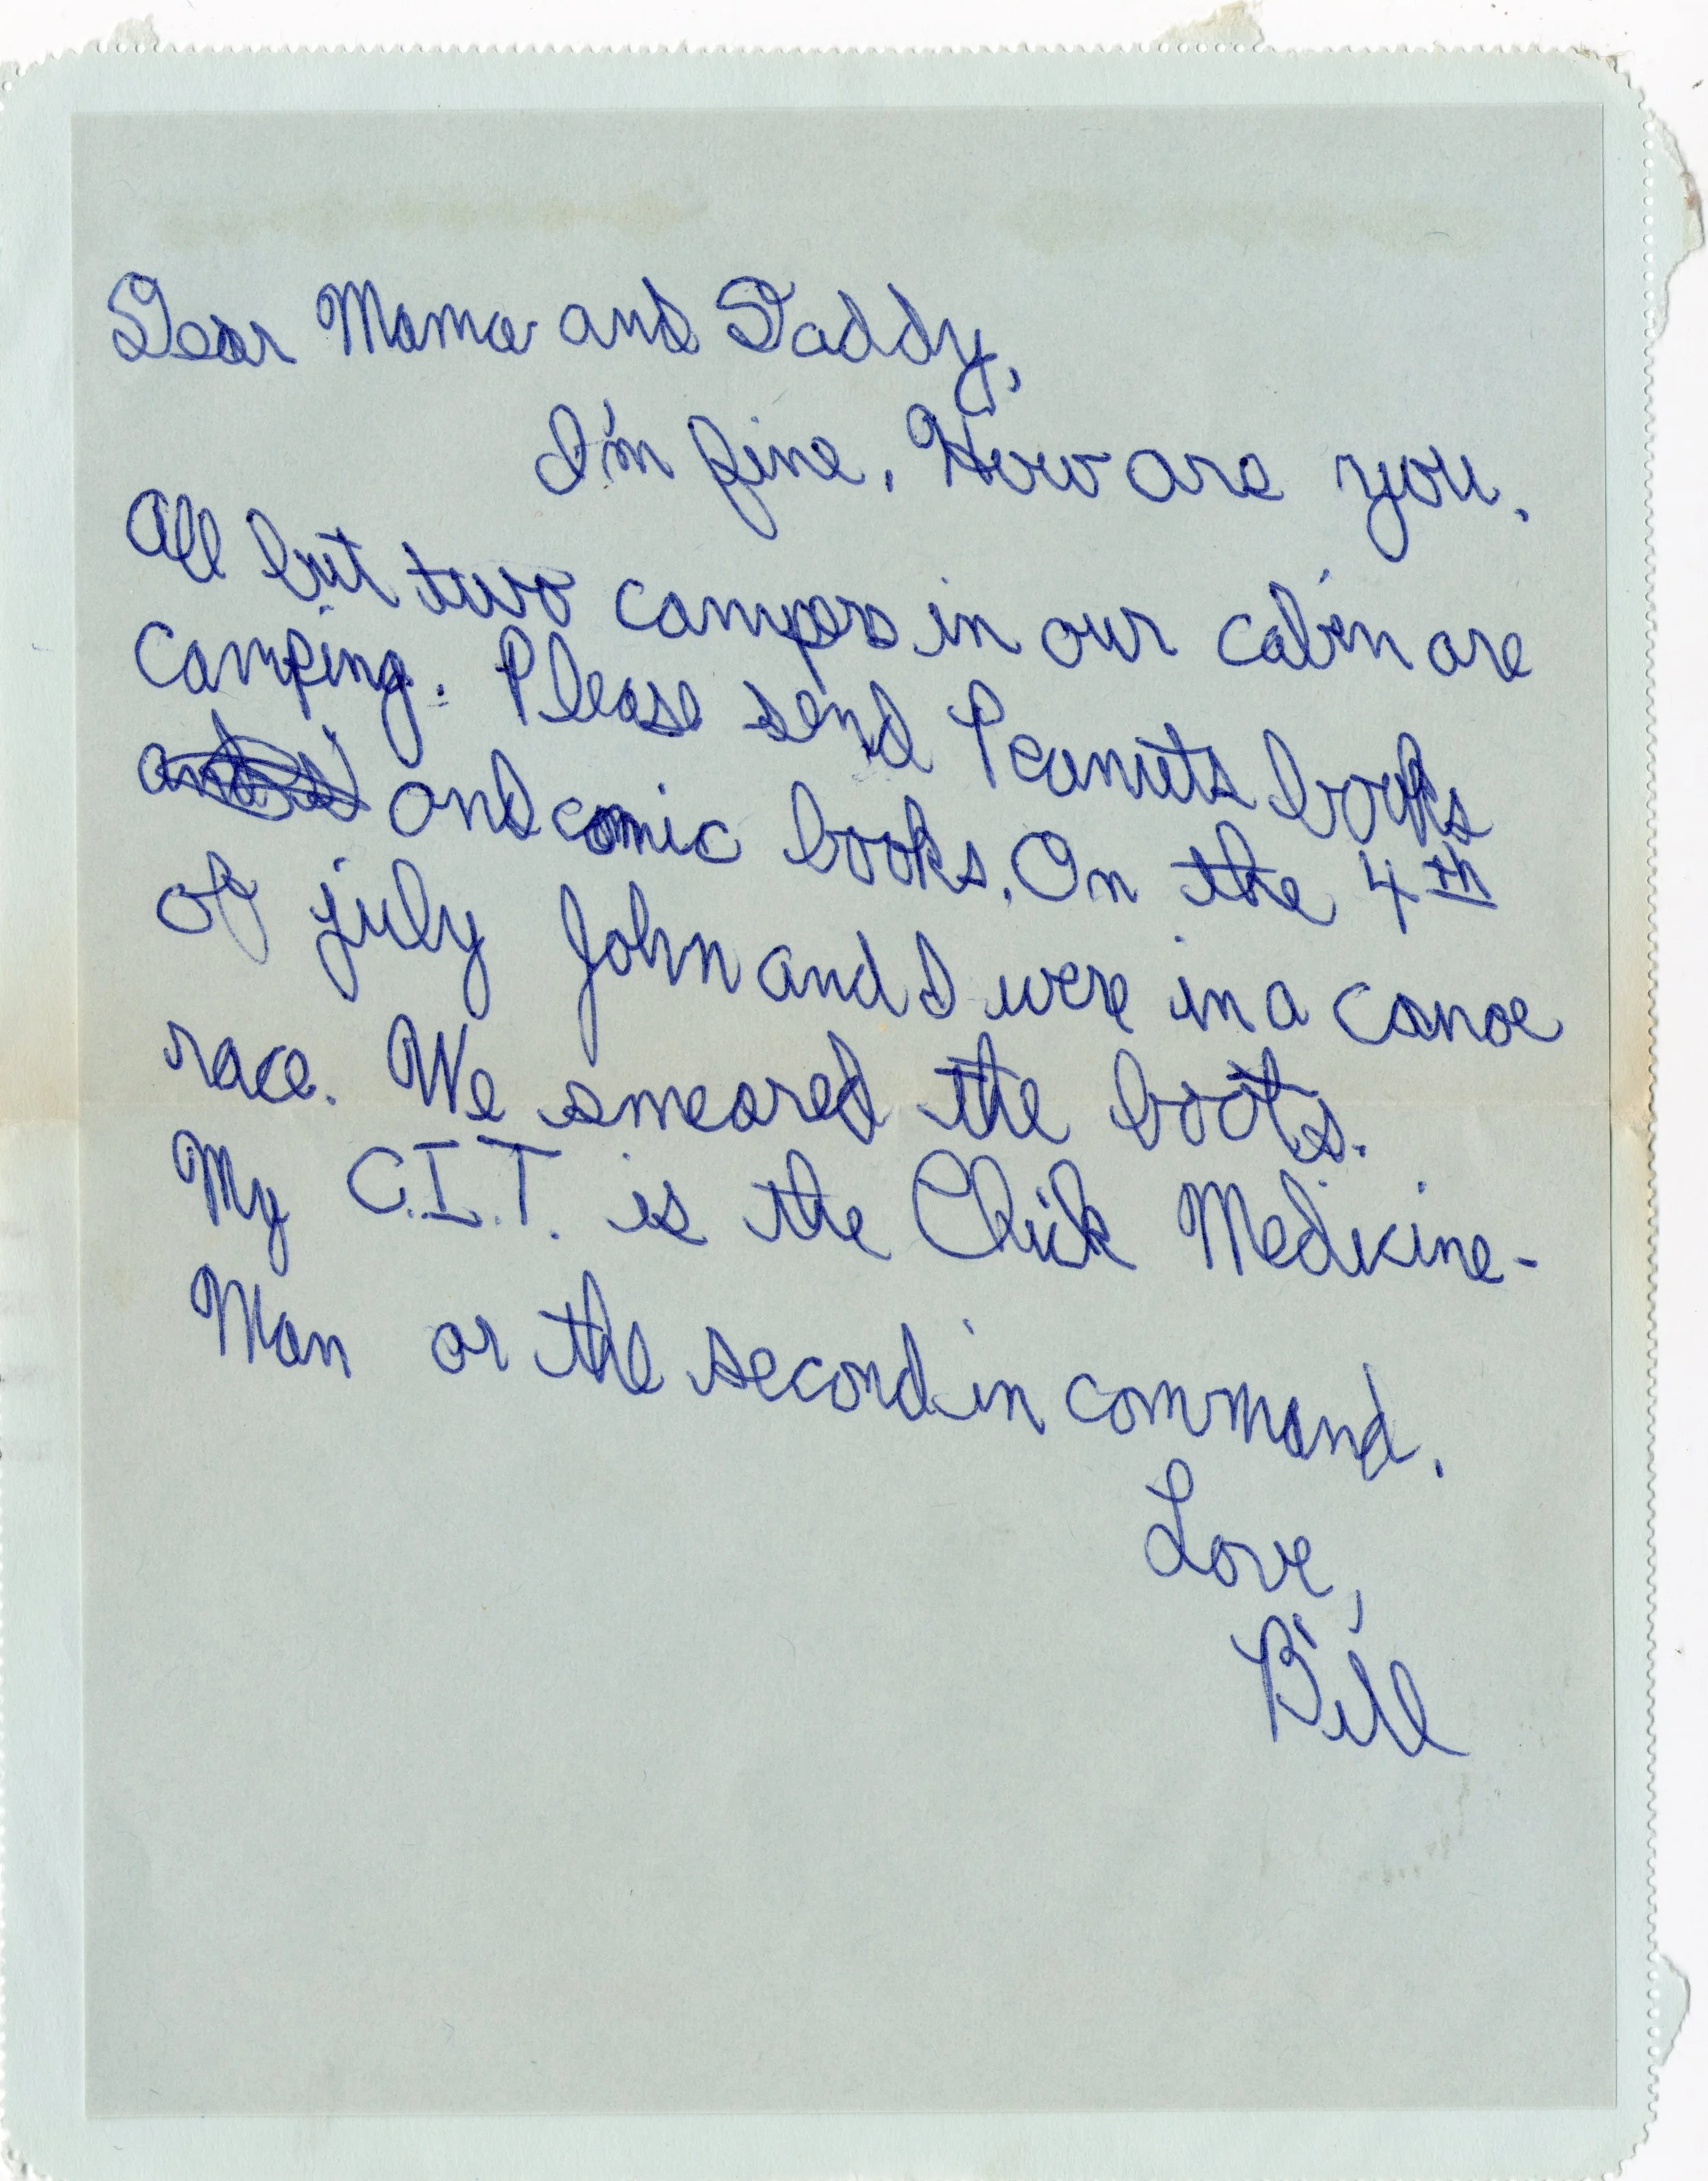 Dear Mama and Daddy,
I'm fine. How are you.
All but two campers in our cabin are
Camping. Please send Peanuts books
and comic books. On the 4th
of july John and I were in a canoe
race. We smeared the boots.
My C.I.T. is the Chick Medicine-
Man or the second in command.
Love,
Bill